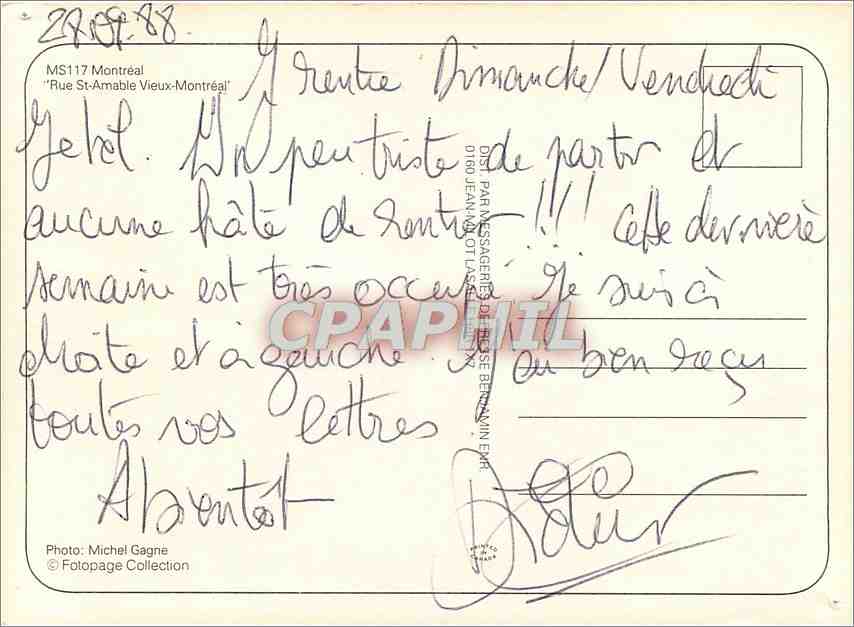 28.09.88.
MS117 Montréal
"Rue St-Amable Vieux-Montréal"
rentre Dimanche/Vendredi
Un peu triste de partir et
aucune hâte de rentrer !!! cette dernière
semaine est très occupé. Je suis à
droite et à gauche. J'ai bien reçu
toutes vos lettres.
A bientôt
DIST. PAR MESSAGERIES DE PRESSE BENJAMIN ENR.
0160 JEAN-MILOT LASALLE
CPAPHIL
PRINTED
IN
CANADA
Photo: Michel Gagne
© Fotopage Collection